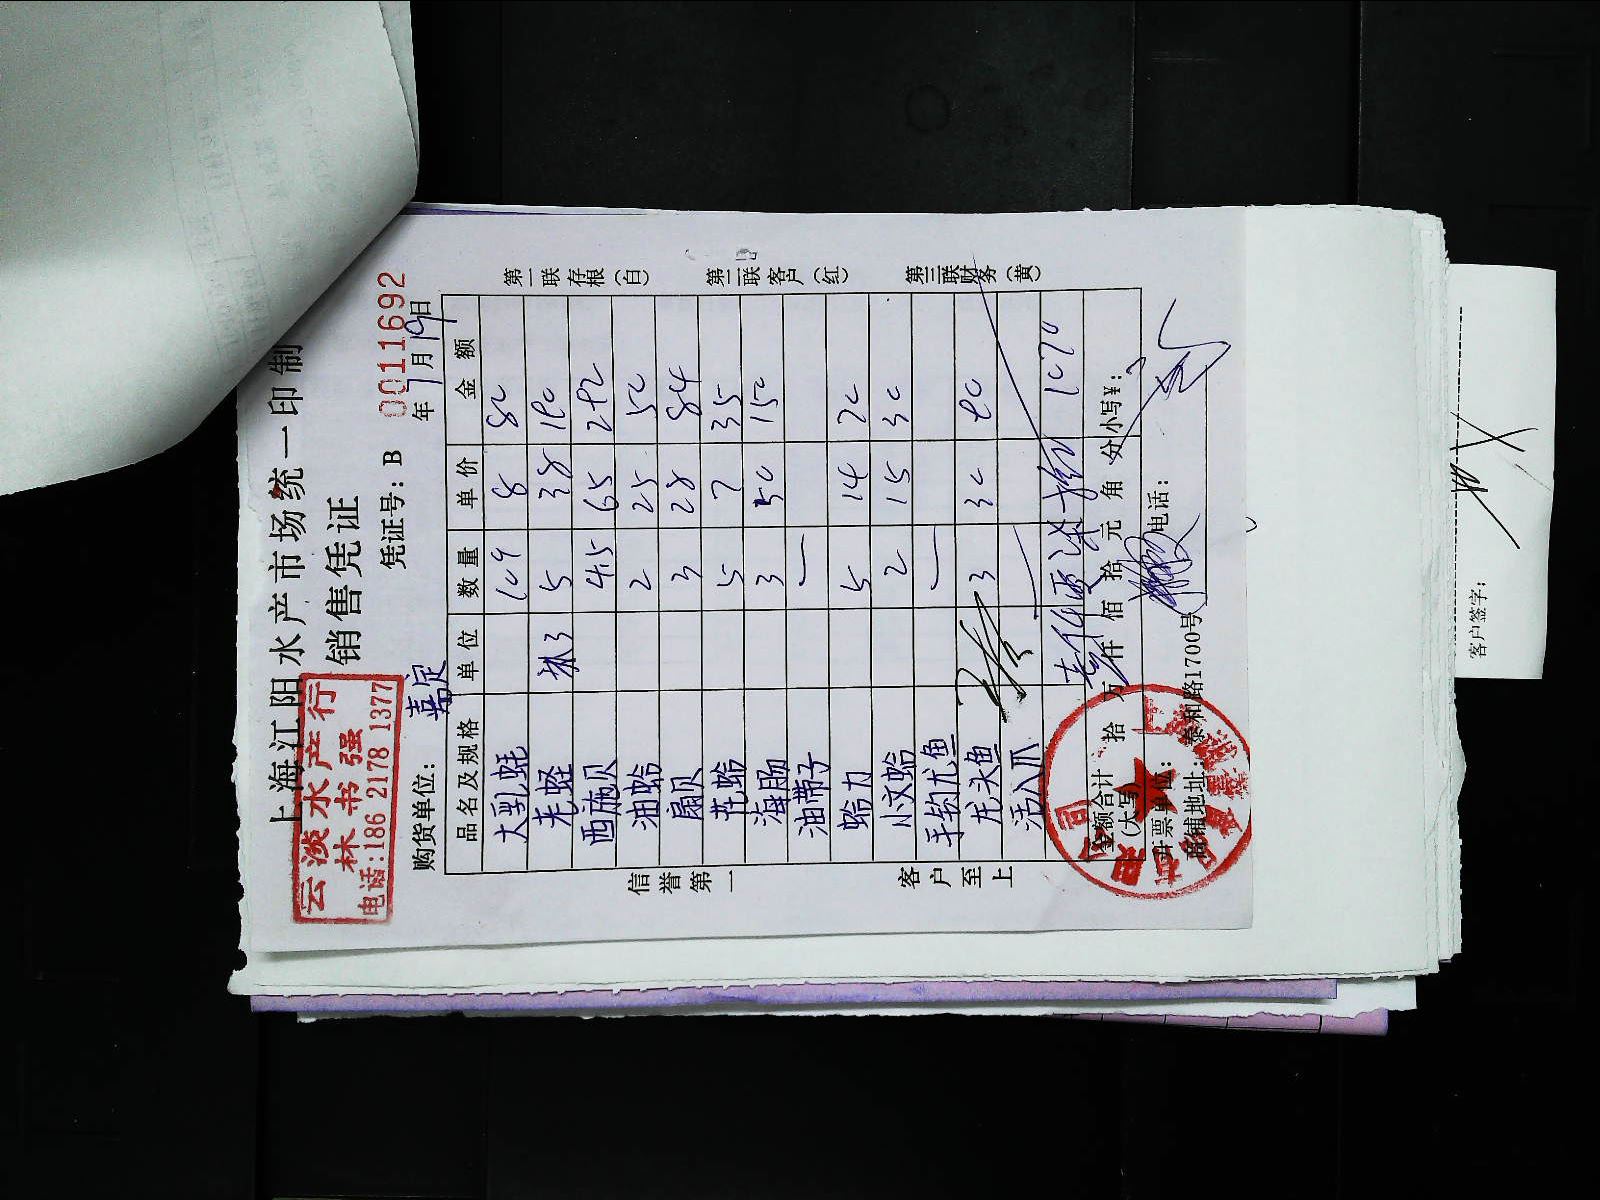 上海江阳水产市场统一印制
销售凭证
云淡水产行
林书强
电话:186 2178 1377
凭证号:B 0011692
购货单位: 嘉定 年7月19日
品名及规格 单位 数量 单价 金额
大乳蚝 109 8 80
老蛏 5 38 190
西施贝 4.5 65 292
油蛤 2 25 50
扇贝 3 28 84
花蛤 5 7 35
海肠 3 50 150
油带子 —
蛤力 5 14 70
小文蛤 2 15 30
手钓尤鱼 —
龙头鱼 3 30 90
活八爪 —
1070
金额合计(大写) 拾 万 仟 佰 拾 元 角 分 小写¥:
开票单位: 电话:
商铺地址: 泰和路1700号
信誉第一
客户至上
第一联存根(白)
第二联客户(红)
第三联财务(黄)
客户签字: